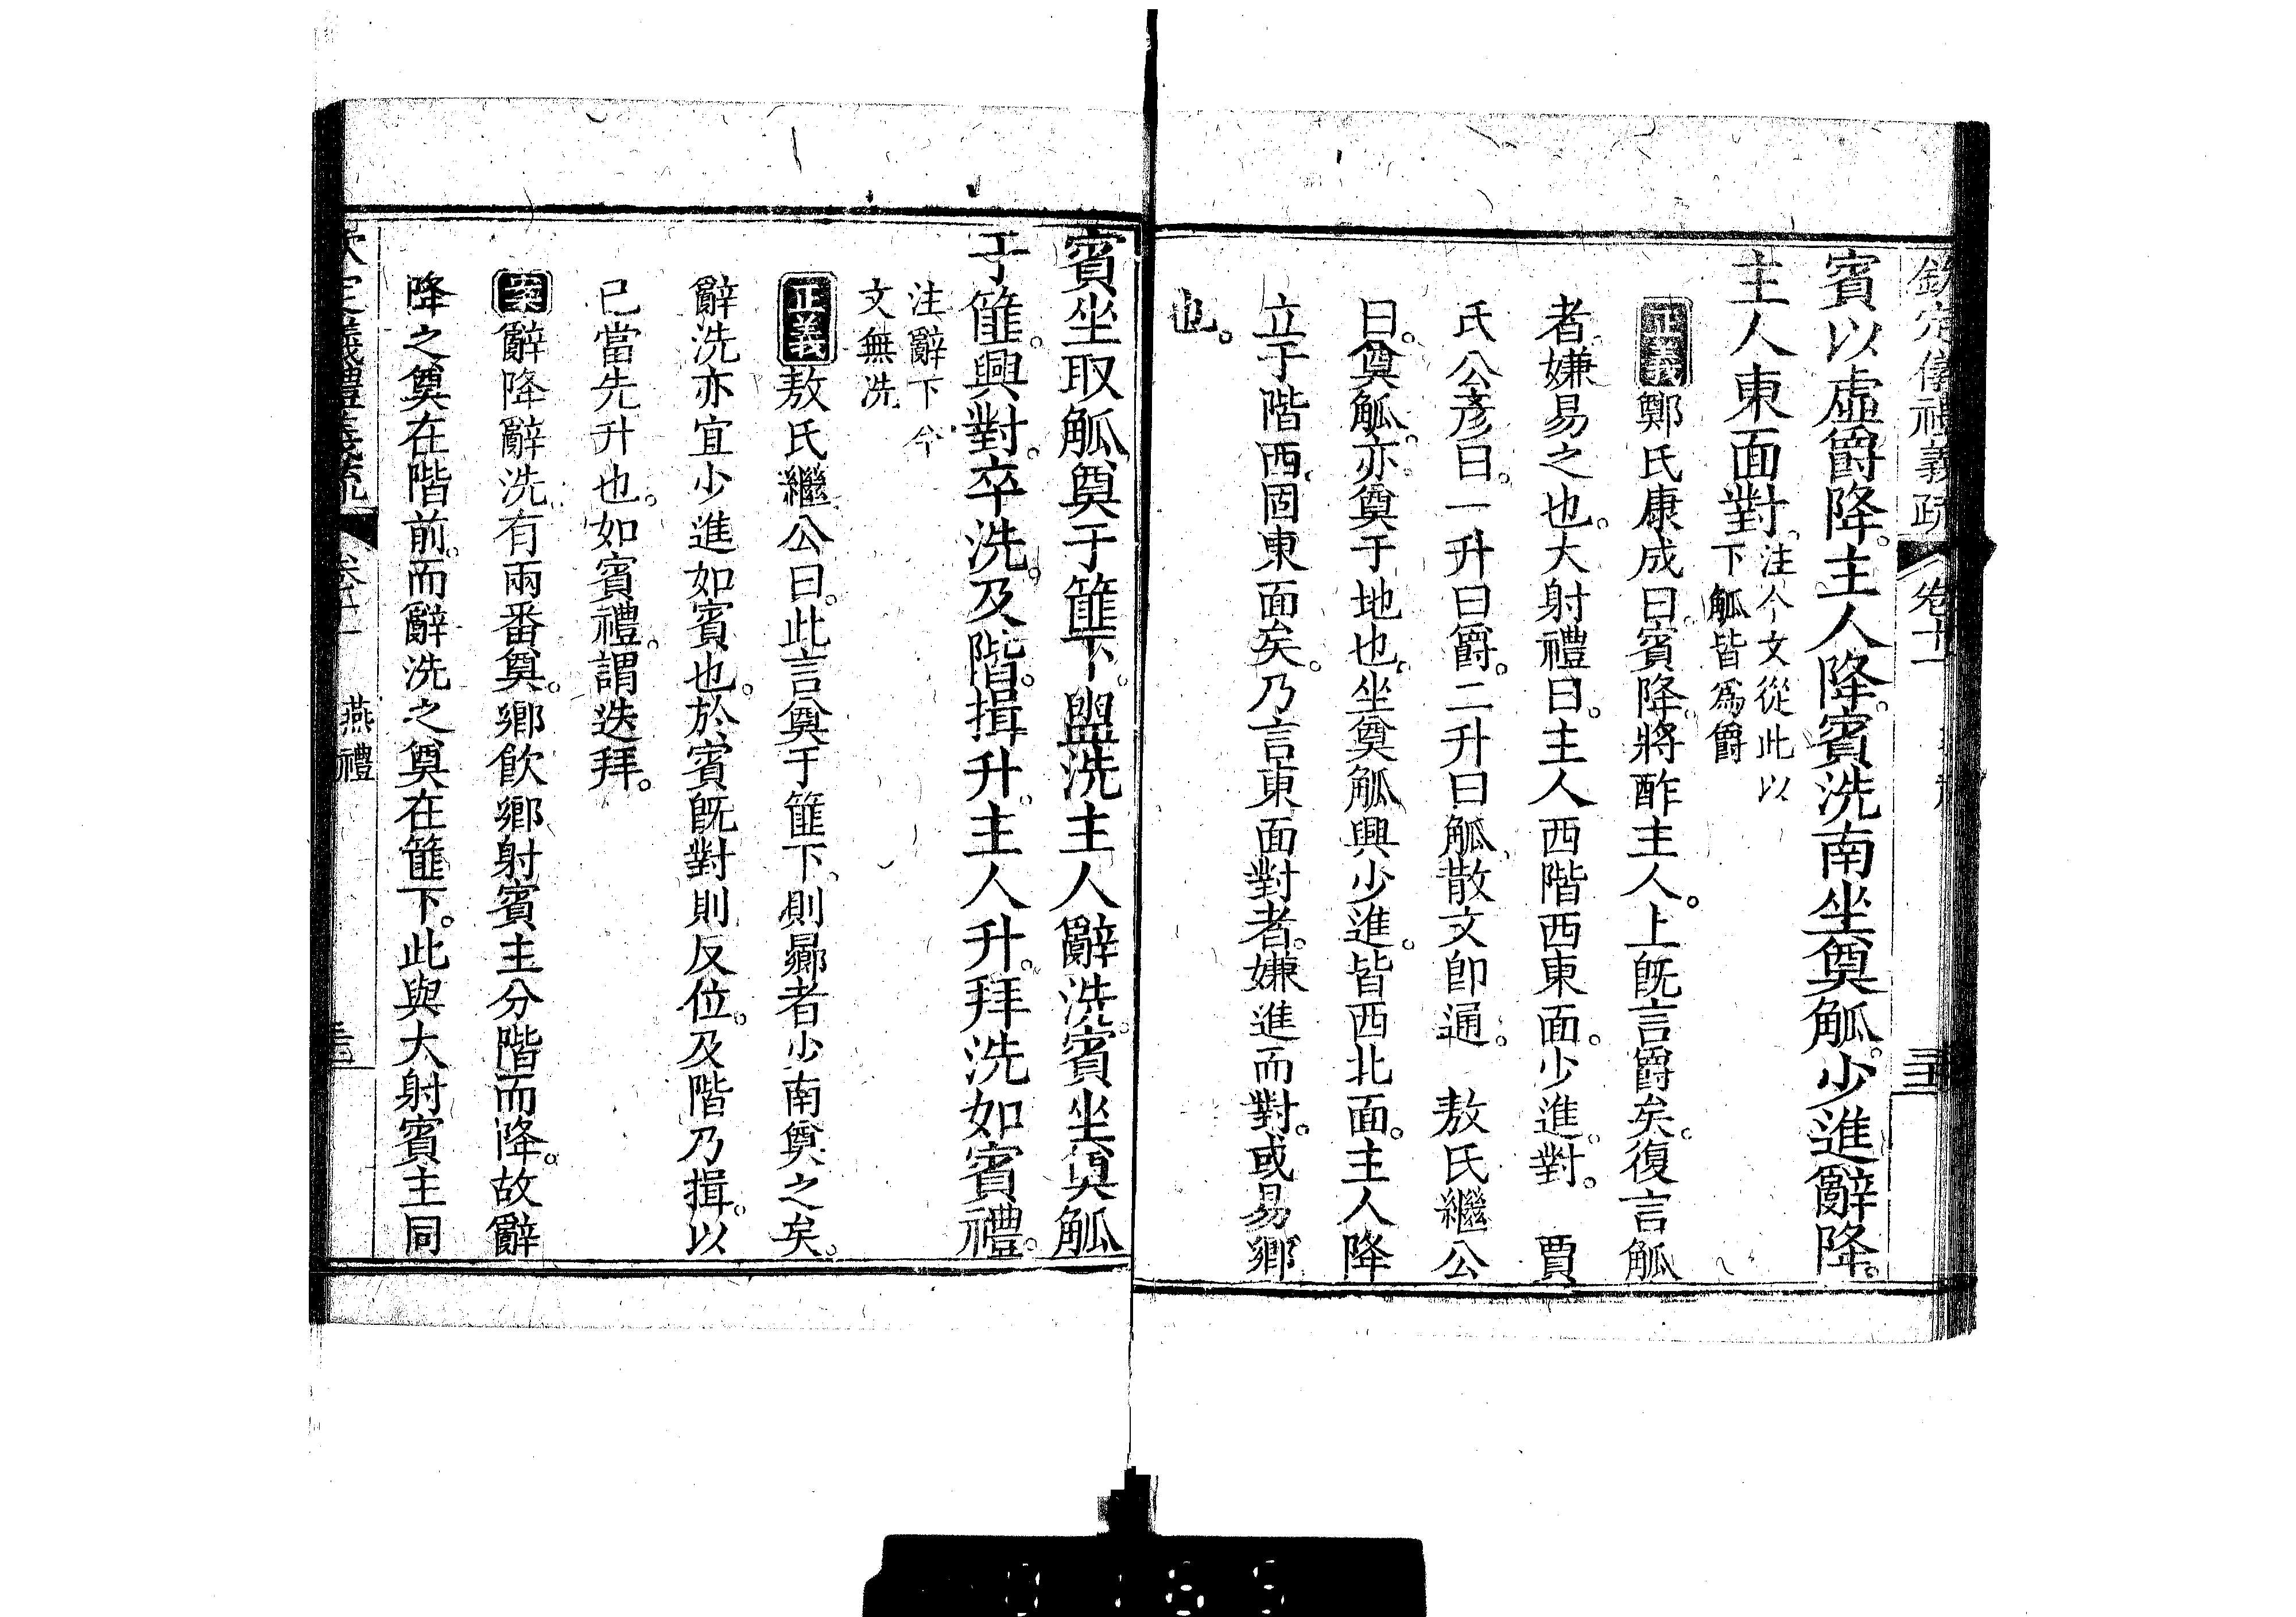 欽定儀禮義疏 卷十一
賓以虛爵降。主人降。賓洗南坐奠觚。少進。辭降。
主人東面對。注今文從此以
下觚皆爲爵
正義鄭氏康成曰。賓降。將酢主人。上旣言爵矣。復言觚
者。嫌易之也。大射禮曰。主人西階西東面。少進對。 賈
氏公彥曰。一升曰爵。二升曰觚。散文卽通。 敖氏繼公
曰。奠觚。亦奠于地也。坐奠觚興少進。皆西北面。主人降
立于階西。固東面矣。乃言東面對者。嫌進而對。或易鄉
也。
賓坐取觚。奠于篚下。盥洗主人辭洗。賓坐奠觚
于篚。興對。卒洗。及階。揖升。主人升。拜洗如賓禮。
注辭下今
文無洗
正義敖氏繼公曰。此言奠于篚下。則曏者少南奠之矣。
辭洗亦宜少進如賓也。於賓旣對則反位。及階乃揖。以
已當先升也。如賓禮。謂迭拜。
案辭降辭洗有兩番奠。鄉飮鄉射賓主分階而降。故辭
降之奠在階前。而辭洗之奠在篚下。此與大射賓主同
欽定儀禮義疏 卷十一 燕禮